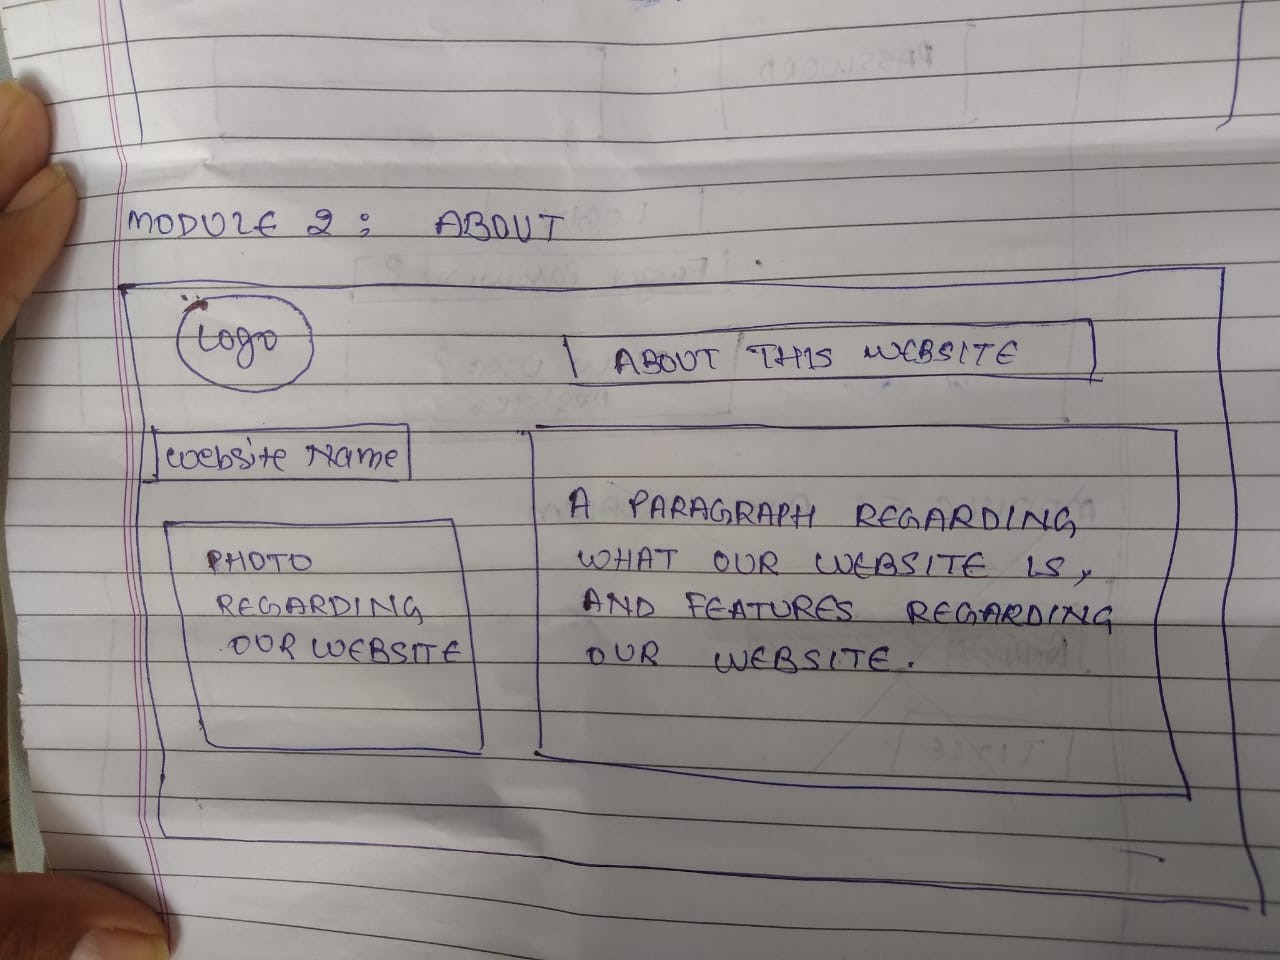 MODULE 2 : ABOUT
Logo
ABOUT THIS WEBSITE
Website Name
PHOTO
REGARDING
OUR WEBSITE
A PARAGRAPH REGARDING
WHAT OUR WEBSITE IS,
AND FEATURES REGARDING
OUR WEBSITE.